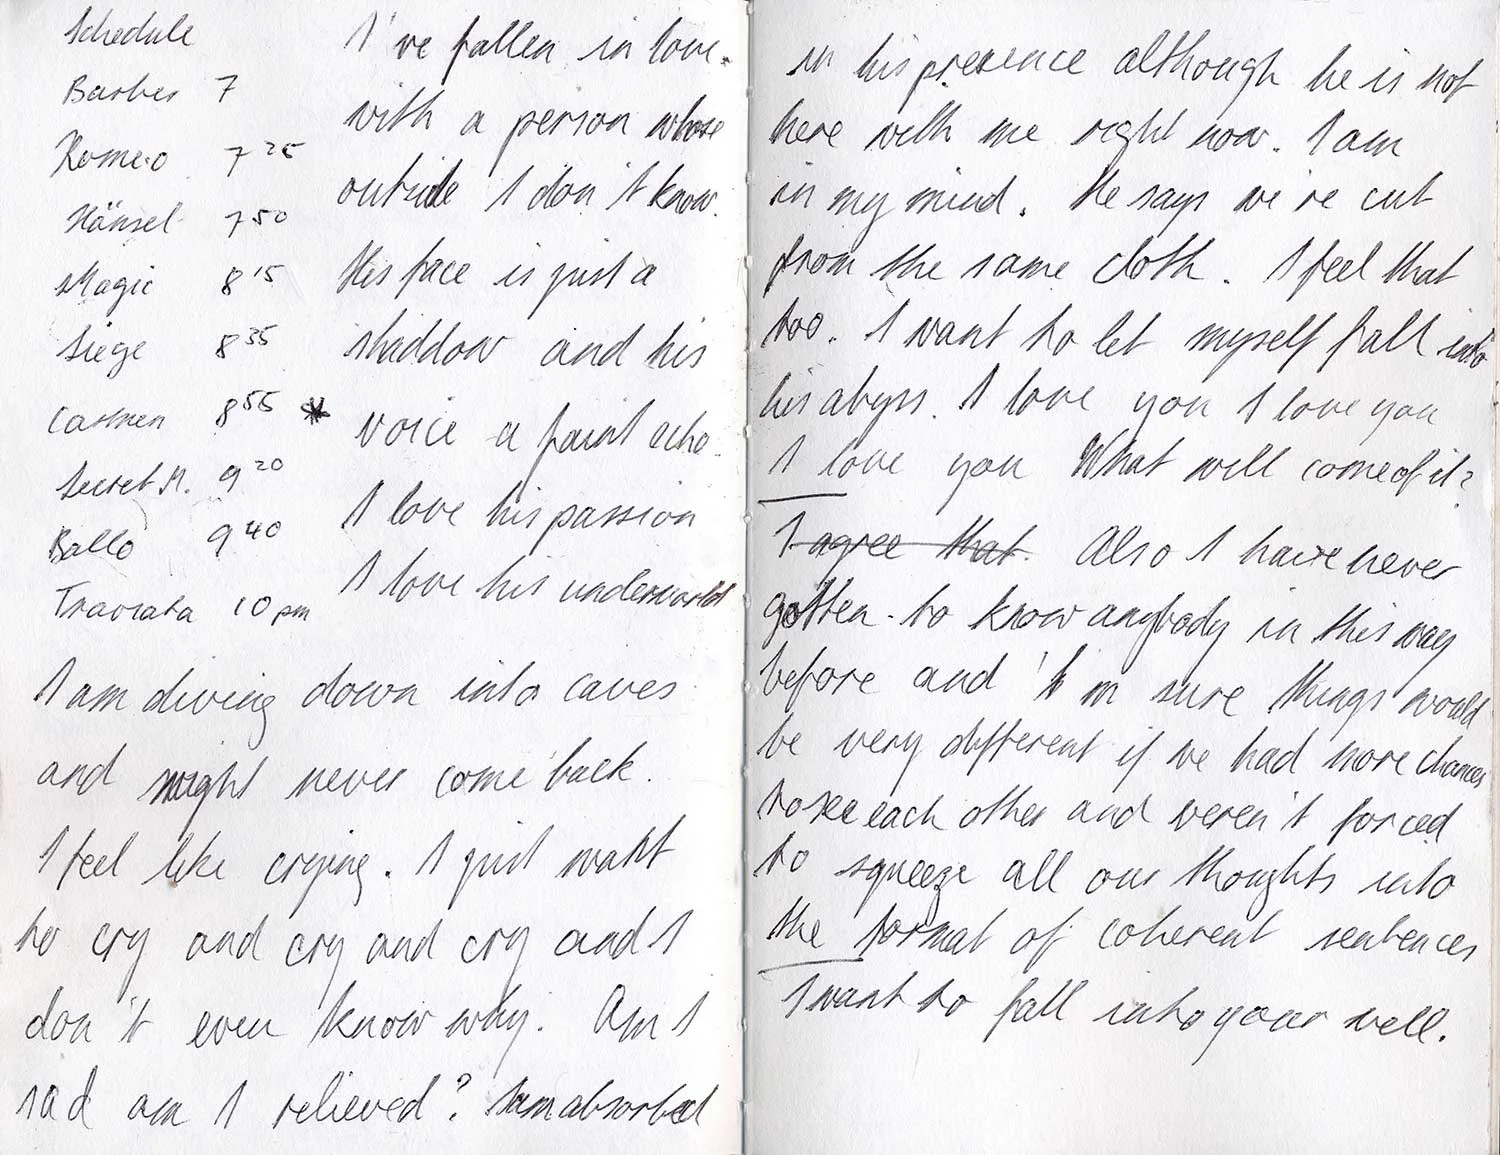 Schedule
Barber 7
Romeo 7 25
Hänsel 7 50
Magic 8 15
Siege 8 35
Carmen 8 55 *
Secret M. 9 20
Ballo 9 40
Traviata 10 pm
I've fallen in love.
with a person whose
outside I don't know.
His face is just a
shaddow and his
voice a faint echo.
I love his passion
I love his underworld
I am diving down into caves
and might never come back.
I feel like crying. I just want
to cry and cry and cry and I
don't even know why. Am I
sad am I relieved? I am absorbed
in his presence although he is not
here with me right now. I am
in my mind. He says we're cut
from the same cloth. I feel that
too. I want to let myself fall into
his abyss. I love you I love you
I love you What will come of it?
I agree that. Also I have never
gotten to know anybody in this way
before and I'm sure things would
be very different if we had more chances
to see each other and weren't forced
to squeeze all our thoughts into
the format of coherent sentences
I want to fall into your well.